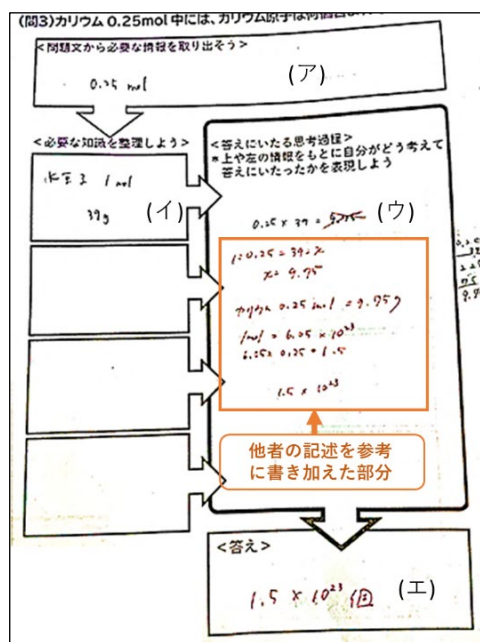 (問3)カリウム 0.25mol 中には、カリウム原子は何個
<問題文から必要な情報を取り出そう>
0.25 mol
(ア)
<必要な知識を整理しよう>
1 mol
39g
(イ)
<答えにいたる思考過程>
*上や左の情報をもとに自分がどう考えて
答えにいたったかを表現しよう
0.25 × 39 = 9.75
(ウ)
1:0.25 = 39:x
x = 9.75
カリウム 0.25 mol = 9.75g
1mol = 6.25 × 10²³
6.25 × 0.25 = 1.5
1.5 × 10²³
他者の記述を参考
に書き加えた部分
<答え>
1.5 × 10²³ 個
(エ)